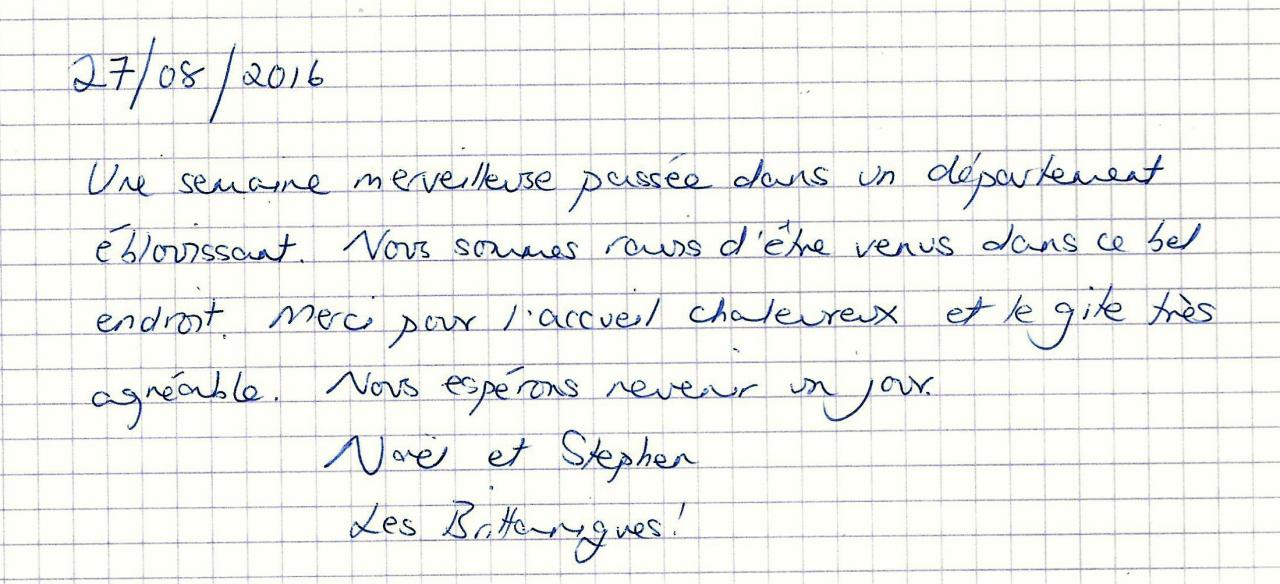 27/08/2016
Une semaine merveilleuse passée dans un département
éblouissant. Nous sommes ravis d'être venus dans ce bel
endroit. Merci pour l'accueil chaleureux et le gite très
agréable. Nous espérons revenir un jour.
et Stephen
Les Brittaniques!